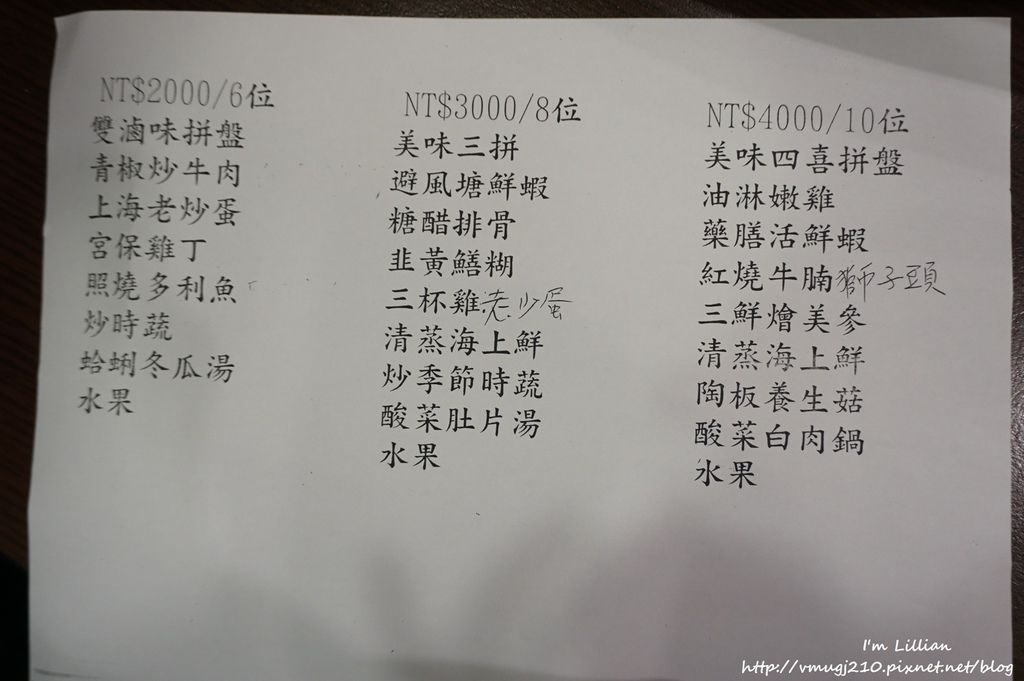 NT$2000/6位
雙滷味拼盤
青椒炒牛肉
上海老炒蛋
宮保雞丁
照燒多利魚
炒時蔬
蛤蜊冬瓜湯
水果
NT$3000/8位
美味三拼
避風塘鮮蝦
糖醋排骨
韭黃鱔糊
三杯雞老少蛋
清蒸海上鮮
炒季節時蔬
酸菜肚片湯
水果
NT$4000/10位
美味四喜拼盤
油淋嫩雞
藥膳活鮮蝦
紅燒牛腩獅子頭
三鮮燴美參
清蒸海上鮮
陶板養生菇
酸菜白肉鍋
水果
I'm Lillian
http://vmugj210.pixnet.net/blog